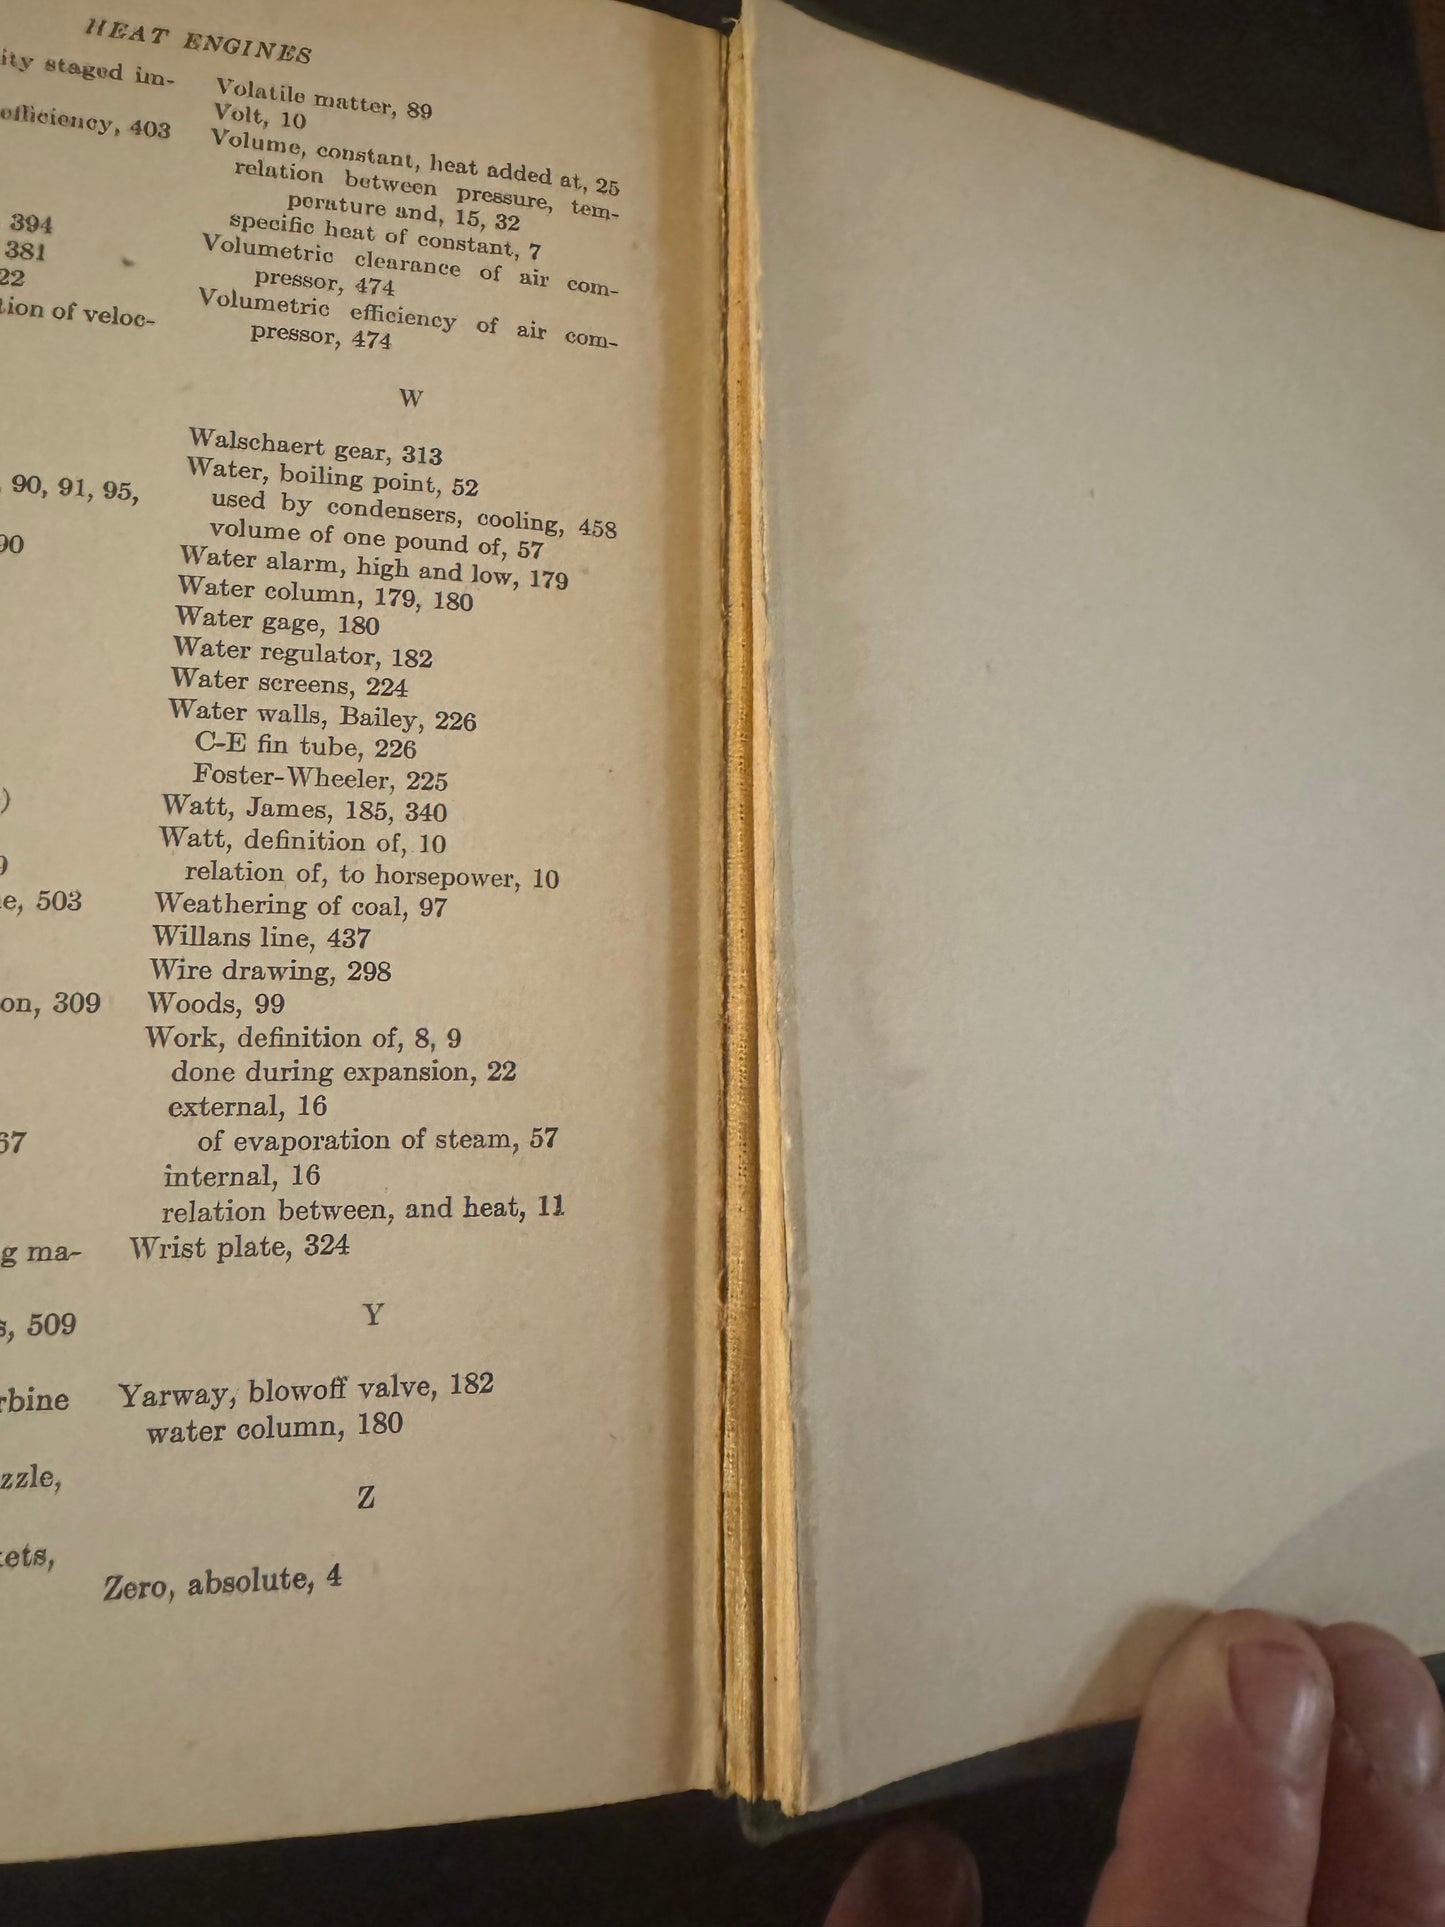 HEAT ENGINES
ity staged im-
efficiency, 403
394
381
22
tion of veloc-
90, 91, 95,
90
)
9
e, 503
on, 309
67
g ma-
s, 509
rbine
zzle,
kets,
Volatile matter, 89
Volt, 10
Volume, constant, heat added at, 25
relation between pressure, tem-
perature and, 15, 32
specific heat of constant, 7
Volumetric clearance of air com-
pressor, 474
Volumetric efficiency of air com-
pressor, 474
W
Walschaert gear, 313
Water, boiling point, 52
used by condensers, cooling, 458
volume of one pound of, 57
Water alarm, high and low, 179
Water column, 179, 180
Water gage, 180
Water regulator, 182
Water screens, 224
Water walls, Bailey, 226
C-E fin tube, 226
Foster-Wheeler, 225
Watt, James, 185, 340
Watt, definition of, 10
relation of, to horsepower, 10
Weathering of coal, 97
Willans line, 437
Wire drawing, 298
Woods, 99
Work, definition of, 8, 9
done during expansion, 22
external, 16
of evaporation of steam, 57
internal, 16
relation between, and heat, 11
Wrist plate, 324
Y
Yarway, blowoff valve, 182
water column, 180
Z
Zero, absolute, 4